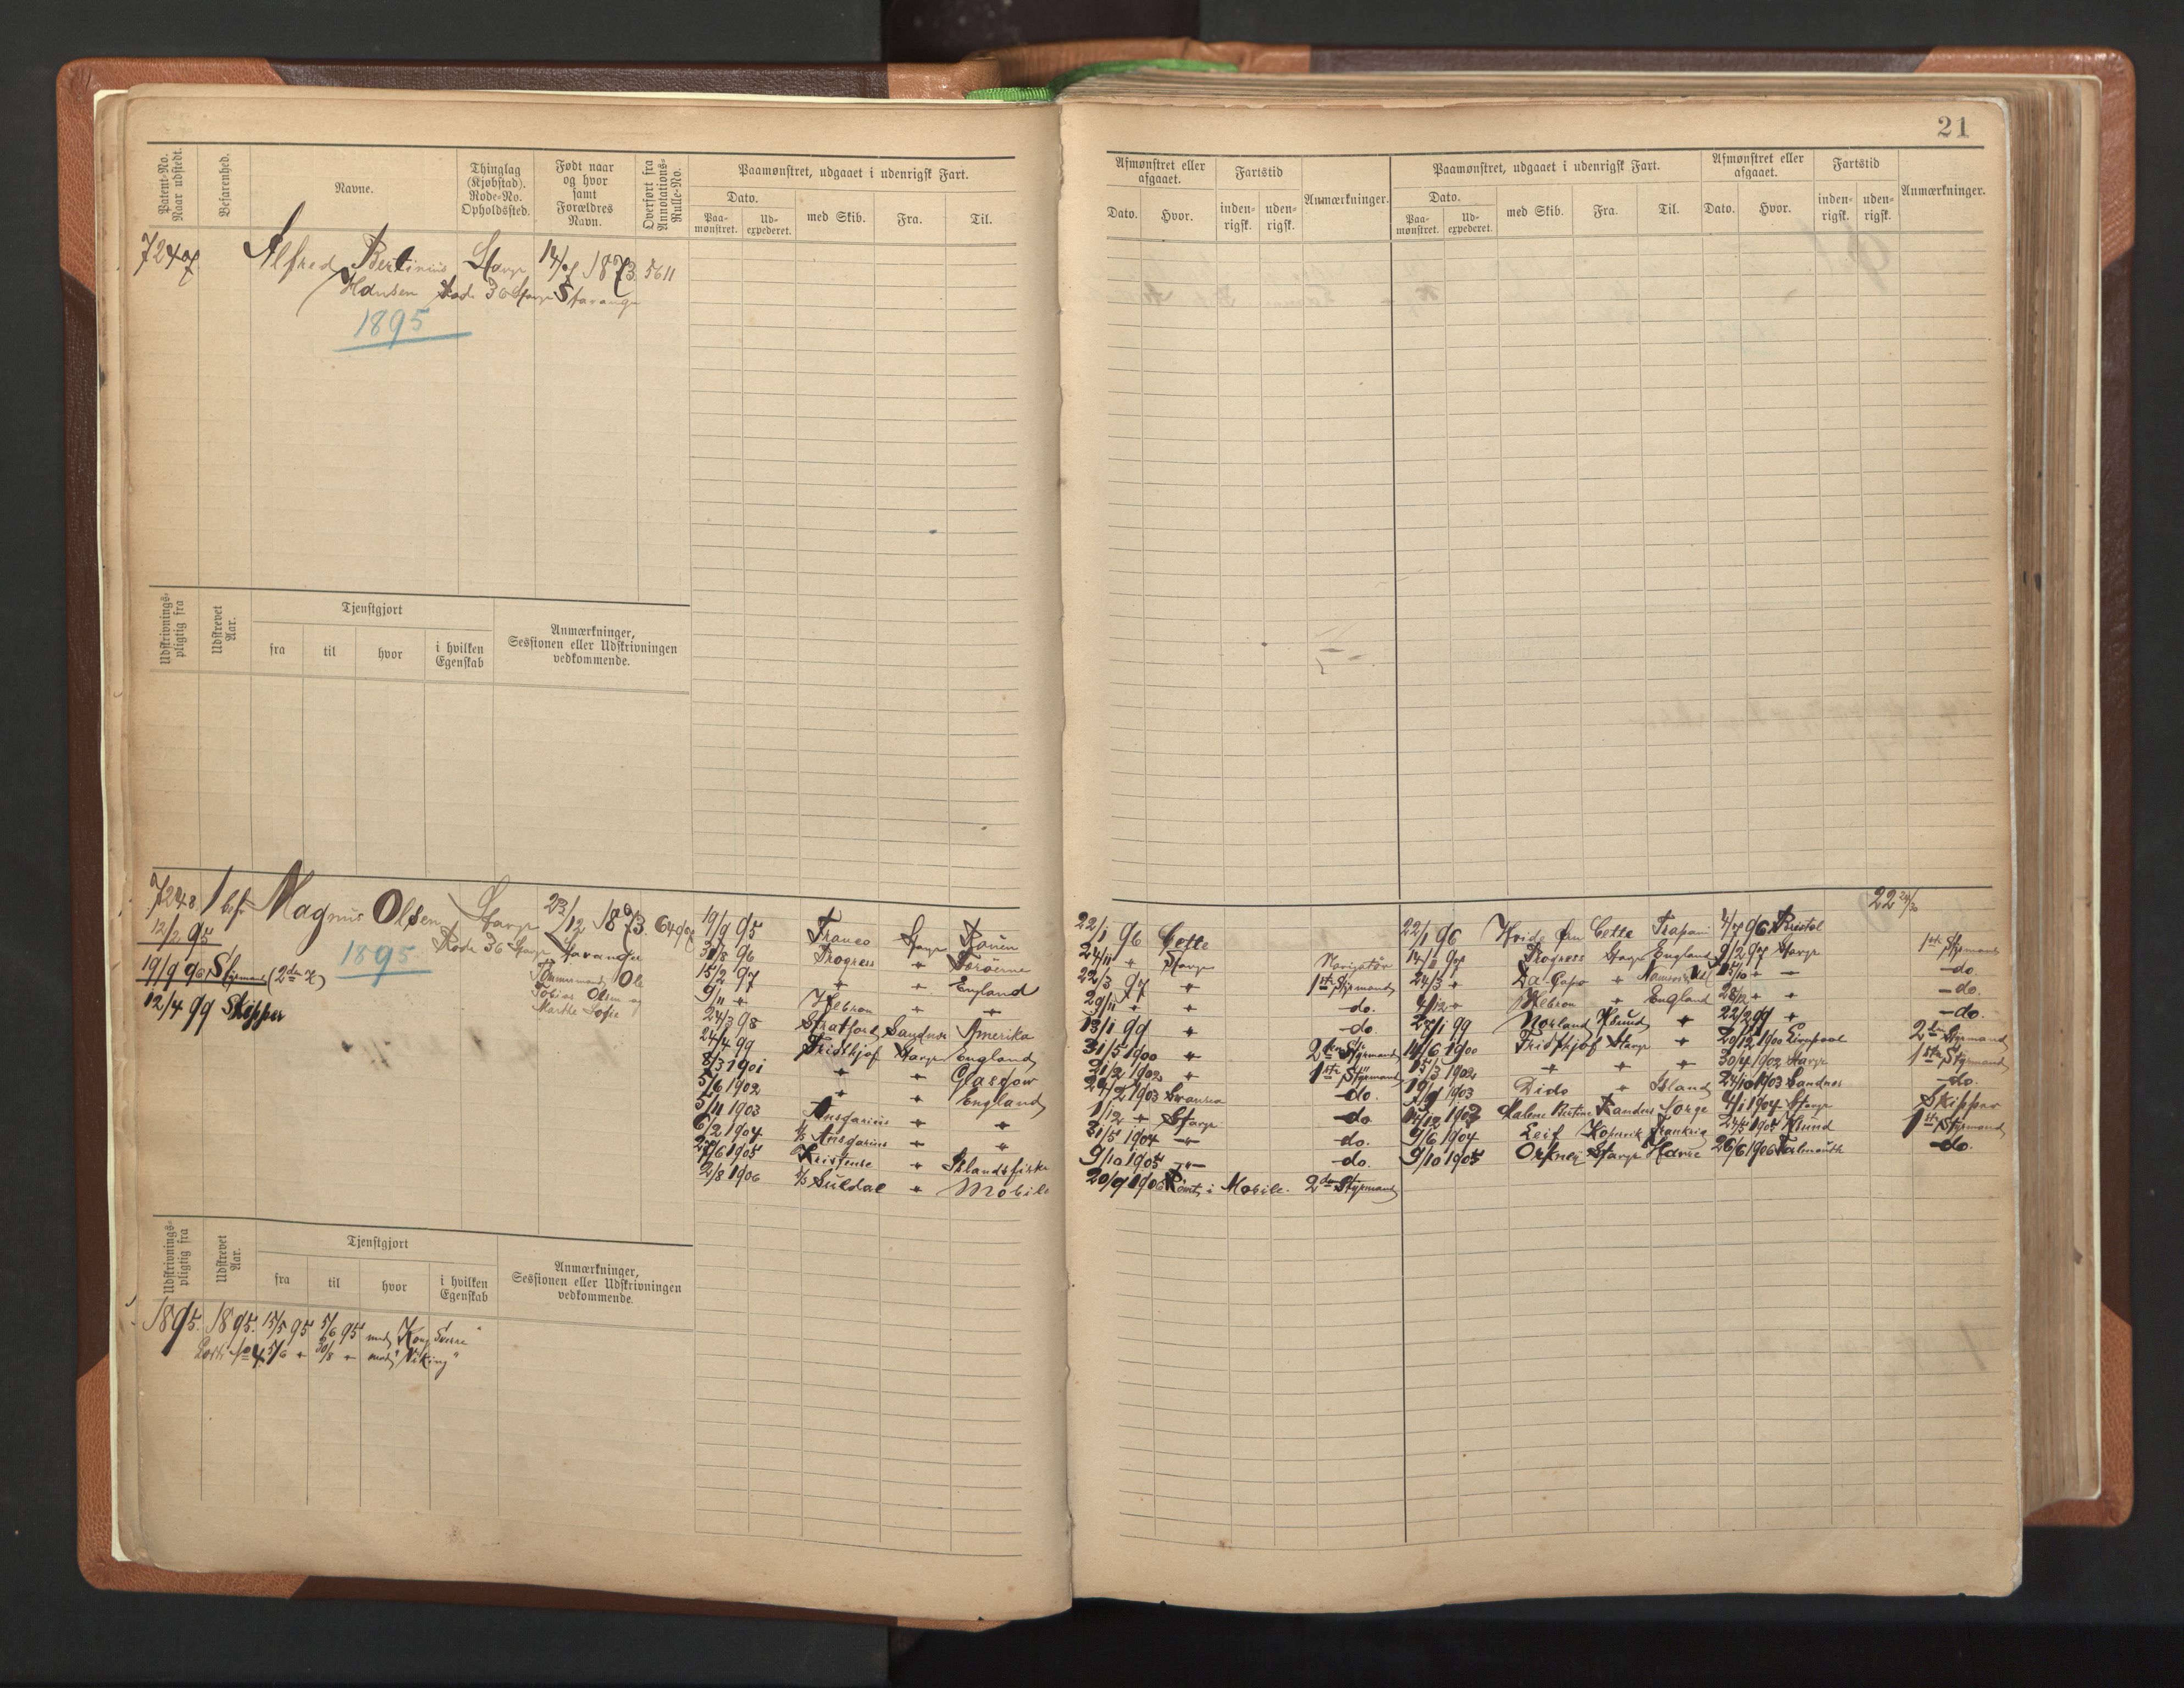 21
Patent-No. Naar udstedt.
Befarenhed.
Navne.
Thinglag (Kjøbstad). Rode-No. Opholdssted.
Født naar og hvor samt Forældres Navn.
Overført fra Annotations-Rulle-No.
Paamønstret, udgaaet i udenrigsk Fart.
Dato.
Paa-mønstret.
Ud-expederet.
med Skib.
Fra.
Til.
Afmønstret eller afgaaet.
Dato.
Hvor.
Fartstid
inden-rigsk.
uden-rigsk.
Anmærkninger.
Paamønstret, udgaaet i udenrigsk Fart.
Dato.
Paa-mønstret.
Ud-expederet.
med Skib.
Fra.
Til.
Afmønstret eller afgaaet.
Dato.
Hvor.
Fartstid
inden-rigsk.
uden-rigsk.
Anmærkninger.
7247 Alfred Bertinius Stavgr 1873. 5611
Hansen Rode 36 Stavgr Stavanger
1895
Udskrivnings-pligtig fra
Udskrevet Aar.
Tjenstgjort
fra
til
hvor
i hvilken Egenskab
Anmærkninger, Sessionen eller Udskrivningen vedkommende.
7248 1 bef. Magnus Olsen Stavgr 23/12 1873.
12/2 95
1895
Rode 36 Stavgr Stavanger
19/9 96 Styrmand (2den Kl)
Tømmermand Ole
Tobias Olsen og
Marthe Sofie
12/4 99 Skipper
22 29/30
19/9 95 Franco Stavgr Rouen 22/1 96 Cette 22/1 96 Hvide Ørn Cette Trapani 4/7 96 Bristol
31/8 96 Progress " Færøerne 24/11 " Stavgr Navigatør Progress Stavgr England 9/2 97 Stavgr 1ste Styrmand
15/2 97 " " England 22/3 97 " 1ste Styrmand 24/3 " Da Capo " 15/10 " — do.
9/11 " Hebron " " 29/11 " " do. 4/12 " Hebron " England 28/12 " " do.
24/3 98 Stratford Sandnes Amerika 13/1 99 " do. 27/1 99 Norland Hsund " 22/2 99 " do.
24/4 99 Fridthjof Stavgr England 31/5 1900 " 2den Styrmand 14/6 1900 Fridthjof Stavgr " 20/12 1900 Liverpool 2den Styrmand
8/3 1901 " " Glasgow 31/2 1902 " 1ste Styrmand 15/3 1902 " " " 30/4 1902 Stavgr 1ste Styrmand
5/6 1902 " " England 24/2 1903 Swansea do. 19/9 1903 Dido " Island 24/10 1903 Sandnes do.
5/11 1903 Ansgarius " " 1/12 " Stavgr do. 14/12 1903 Malene Kirstine Randers Norge 4/1 1904 Stavgr Skipper
6/2 1904 D/S Ansgarius " " 31/5 1904 " do. 9/6 1904 Leif Kopervik Frankrig 24/5 1905 Hsund 1ste Styrmand
27/6 1905 Kristense " Islandsfiske 9/10 1905 " do. 9/10 1905 Orkney Stavgr Havre 26/6 1906 Falmouth do.
2/8 1906 D/S Suldal " Mobile 20/9 1906 Rømt i Mobile. 2den Styrmand
Udskrivnings-pligtig fra
Udskrevet Aar.
Tjenstgjort
fra
til
hvor
i hvilken Egenskab
Anmærkninger, Sessionen eller Udskrivningen vedkommende.
1895. 1895. 15/5 95 5/6 95 med "Kong Sverre"
No 4 5/6 " 30/8 " med "Viking"